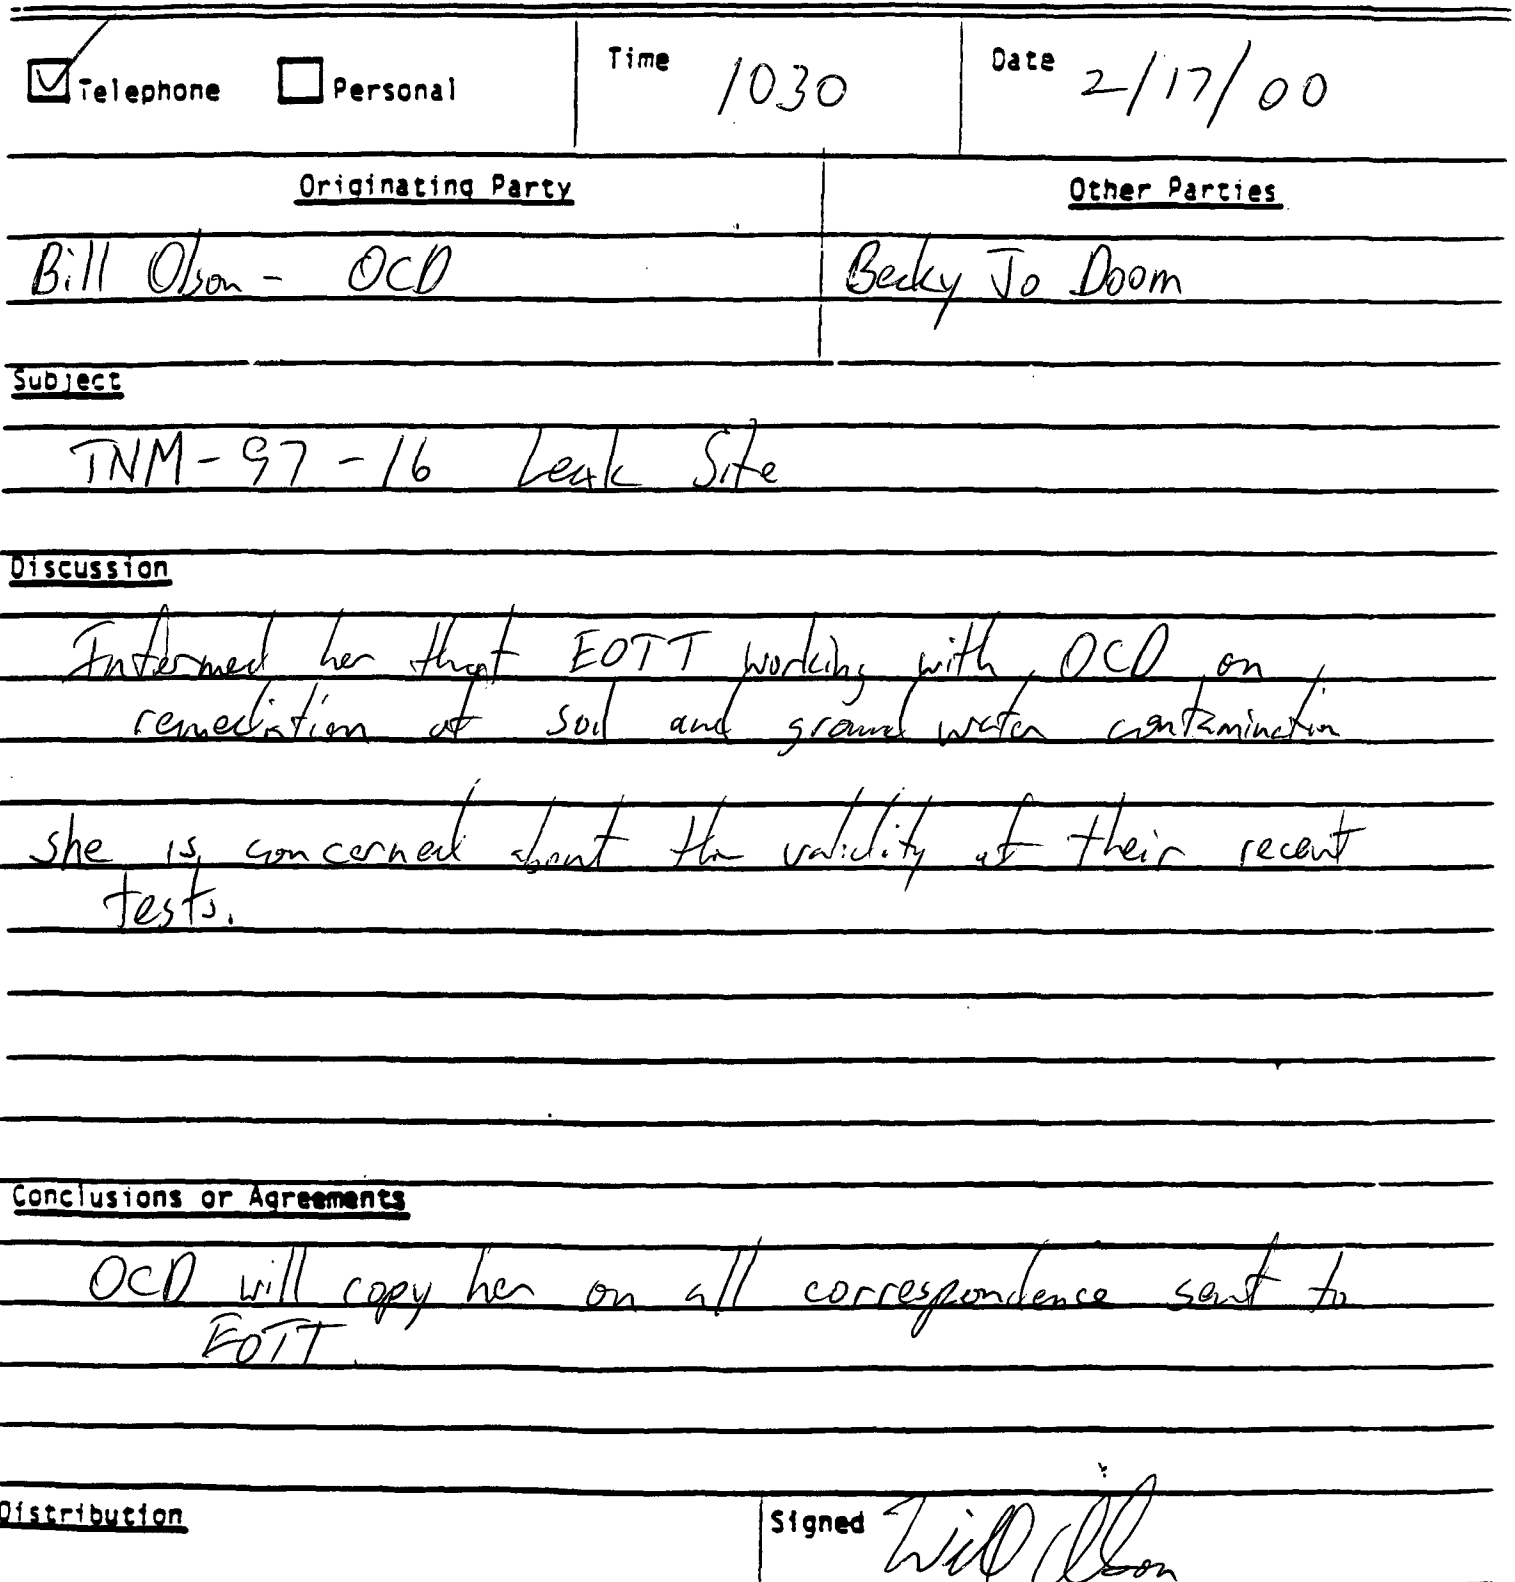 Telephone Personal Time 1030 Date 2/17/00
Originating Party Other Parties
Bill Olson - OCD Becky Jo Doom
Subject
TNM-97-16 Leak Site
Discussion
Informed her that EOTT working with OCD on
remediation of soil and ground water contamination
she is concerned about the validity of their recent
tests.
Conclusions or Agreements
OCD will copy her on all correspondence sent to
EOTT.
Distribution Signed Will Olson